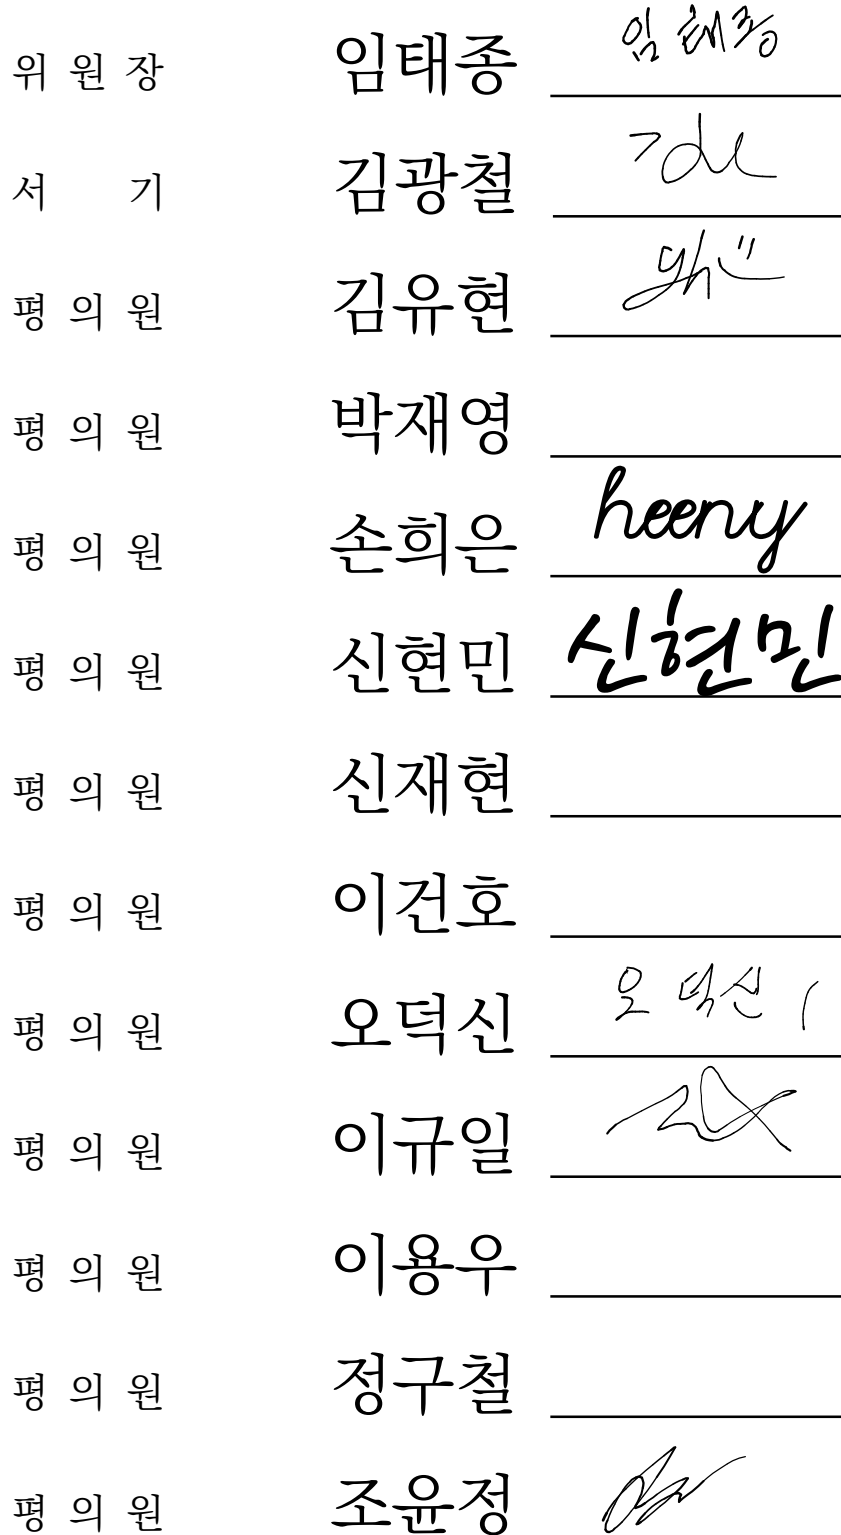 위 원 장 임태종 임태종
서 기 김광철
평 의 원 김유현
평 의 원 박재영
평 의 원 손희은 heeny
평 의 원 신현민 신현민
평 의 원 신재현
평 의 원 이건호
평 의 원 오덕신 오덕신
평 의 원 이규일
평 의 원 이용우
평 의 원 정구철
평 의 원 조윤정